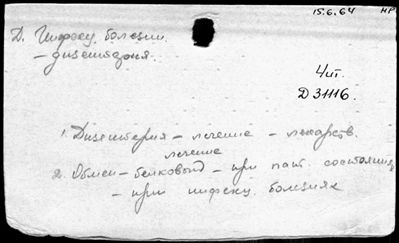 15.6.64 НР
Д. Инфекц. болезни.
– дизентерия.
4ш.
Д 31116.
1. Дизентерия – лечение – лекарств.
лечение
2. Обмен – белковый – при пат. состояниях
– при инфекц. болезнях